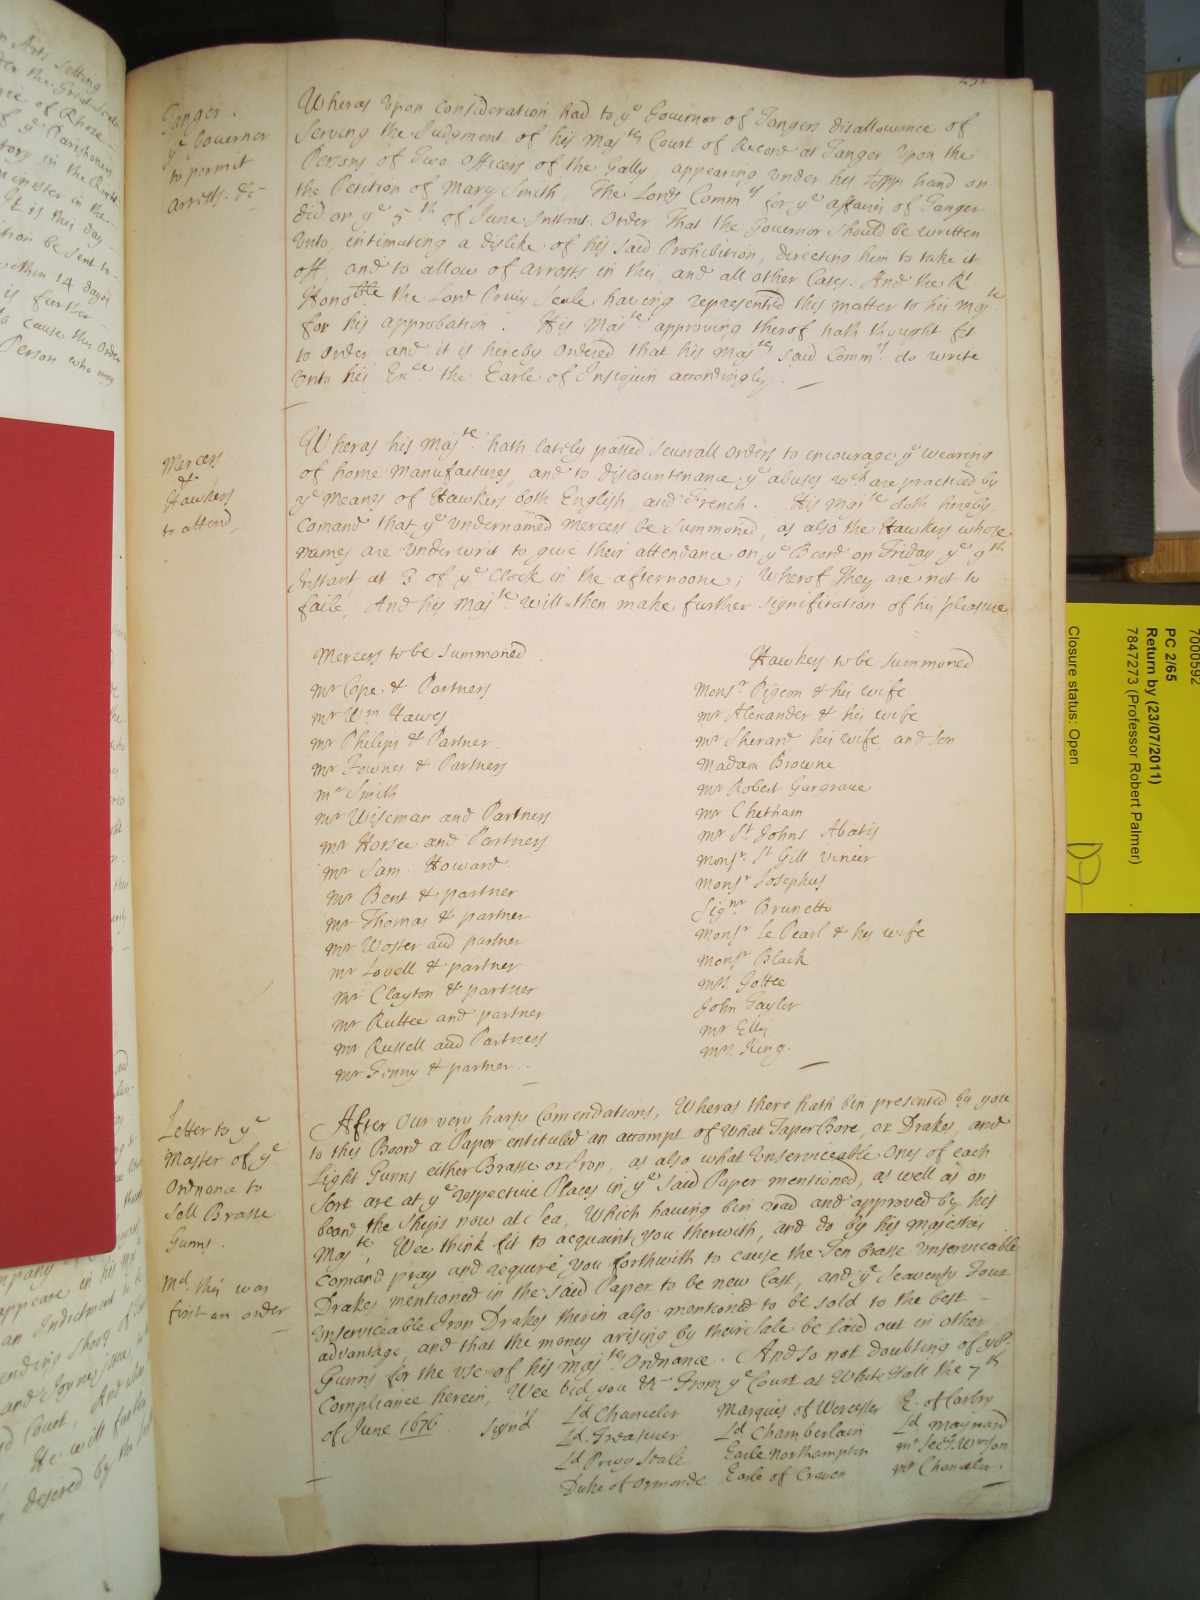 Tanger.
ye Governor
to permit
arrests. &c
Wheras Upon Consideration had to ye Governor of Tangers disallowance of
Serving the Judgment of his Majtes Court of Record at Tanger, Upon the
Persons of Two Officers of the Gally, appearing under his hand on
the Petition of Mary Smith, The Lords Commrs for ye affaires of Tanger
did on ye 5th of June Instant. Order That the Governor should be written
Unto, intimating a dislike of his said Prohibition, directing him to take it
off, and to allow of arrests in this, and all other Cases. And the Rt
Honoble the Lord Privy Seale having represented this matter to his Majte
for his approbation. His Majte approving therof hath thought fit
to Order and it is hereby Ordered that his Majtes said Commrs. do write
Unto his Exce the Earle of Insiquin accordingly.
Mercers
&
Hawkers
to attend
Wheras his Majte hath lately passed Severall Orders to encourage ye wearing
of home Manufactures, and to discountenance ye abuses wch are practiced by
ye Meanes of Hawkers both English, and French. His Majte doth hereby
Comand that ye undernamed Mercers be Summoned, as also the Hawkers whose
names are Underwrit to give their attendance on ye Board on Friday ye 9th
Instant at 3 of ye Clock in the afternoone; Wherof They are not to
faile. And his Majte will then make further signification of his pleasure
Mercers to be Summoned
Mr Cope & Partners
Mr Wm Hawes
Mr Philips & Partner.
Mr Fownes & Partners
Mr Smith
Mr Wiseman and Partners
Mr Horsee and Partners
Mr Sam. Howard
Mr Bent & partner
Mr Thomas & partner
Mr Woster and partner
Mr Lovell & partner
Mr Clayton & partner
Mr Ruttee and partner
Mr Russell and Partners
Mr Fenny & partner
Hawkers to be Summoned
Monsr Pigeon & his wife
Mr Alexander & his wife
Mr Sherard, his Wife, and Son
Madam Browne
Mr Robert Gargrave
Mr Chetham
Mr St Johns Abatis
Monsr. St Gill Vinier
Monsr Josephus
Signr Brunetto
Monsr le Pearl & his wife
Monsr Black
Mrs Gottee
John Taylor
Mr Ellis
Mrs King.
Letter to ye
Master of ye
Ordnance to
Sell Brasse
Gunns.
Md. this was
first an order
After Our very harty Comendations, Wheras there hath bin presented by you
to this Board a Paper entituled an accompt of What Taper Bore, or Drakes, and
Light Gunns either Brasse or Iron, as also what Unserviceable Ones of each
Sort are at ye respective Places in ye said Paper mentioned, as well as on
board the Ships now at Sea, Which having bin read and approved by his
Majte. Wee think fit to acquaint you therwith, and do by his Majesties
Comand pray and require you forthwith to cause the Ten Brasse Unserviceable
Drakes mentioned in the said Paper to be new Cast, and ye Seaventy Four
Unserviceable Iron Drakes therin also mentioned to be sold to the best
advantage, and that the money arising by their Sale be laid out in other
Gunns for the use of his Majtes Ordnance. And so not doubting of yor
Compliance herein, Wee bid you &c From ye Court at White Hall the 7th
of June 1676. Sign'd
Ld Chanceler
Ld. Treasurer
Ld Privy Seale
Duke of Ormonde
Marques of Worcester
Ld Chamberlain
Earle Northampton
Earle of Craven
E. of Carbry
Ld Maynard
Mr Secr. Wmson
Mr Chancelr.
7000592
PC 2/65
Return by (23/07/2011)
7847273 (Professor Robert Palmer)
Closure status: Open